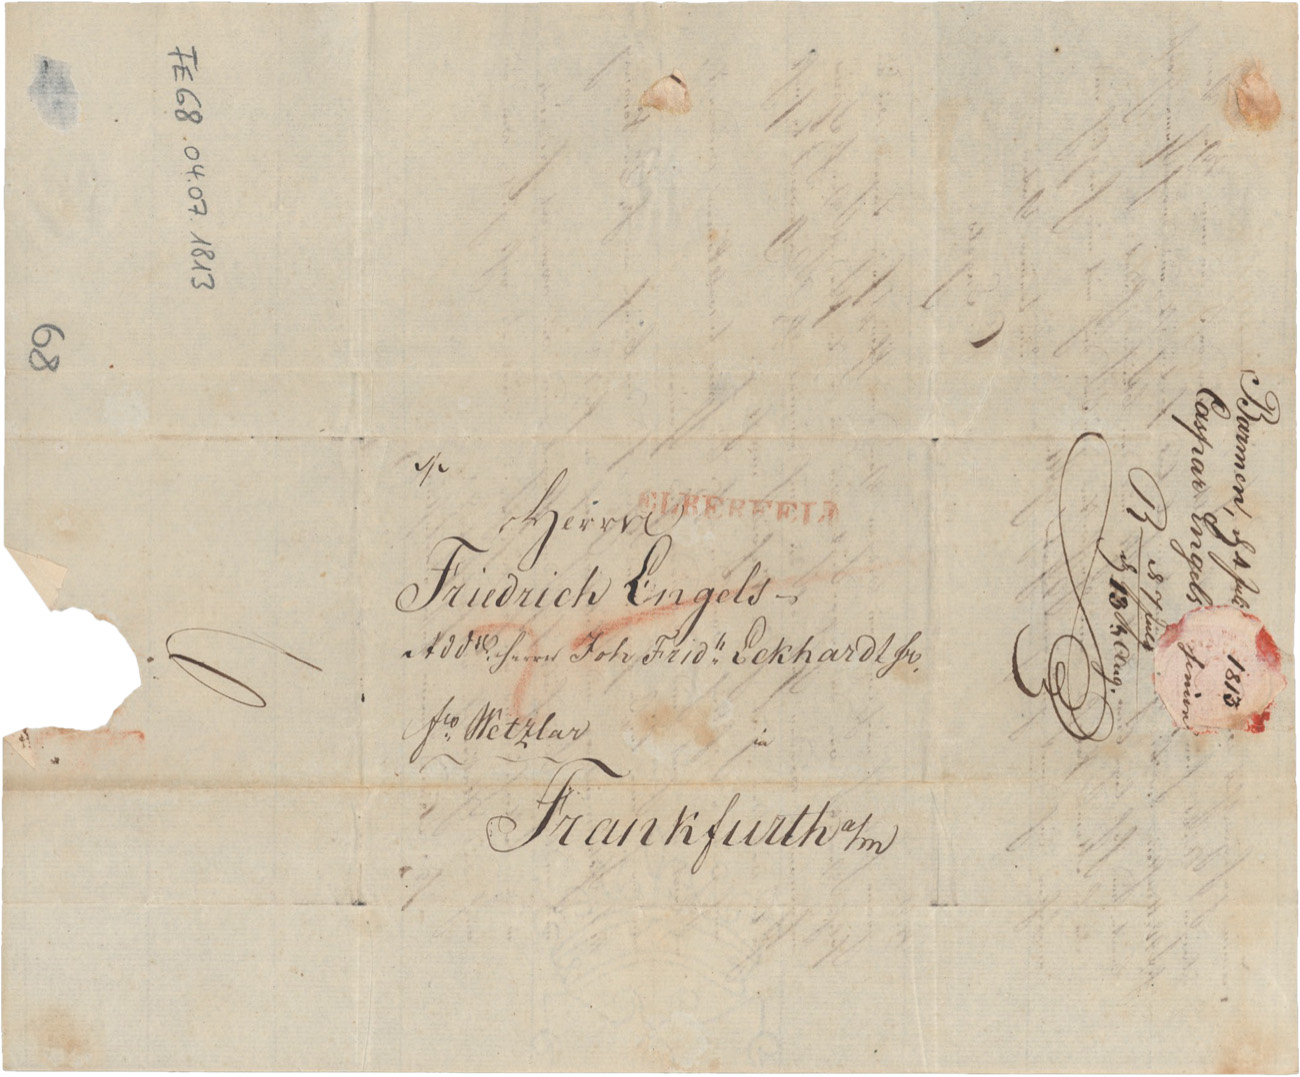 FE68.04.07.1813
68
ELBERFELD
Herrn
Friedrich Engels
Herrn Joh Fridr. Eckhardt
fco Wetzlar
in
Frankfurth a/m
Barmen, d 4 Juli 1813
Caspar Engels Junior
R d 7 Juli
d 13 Aug.